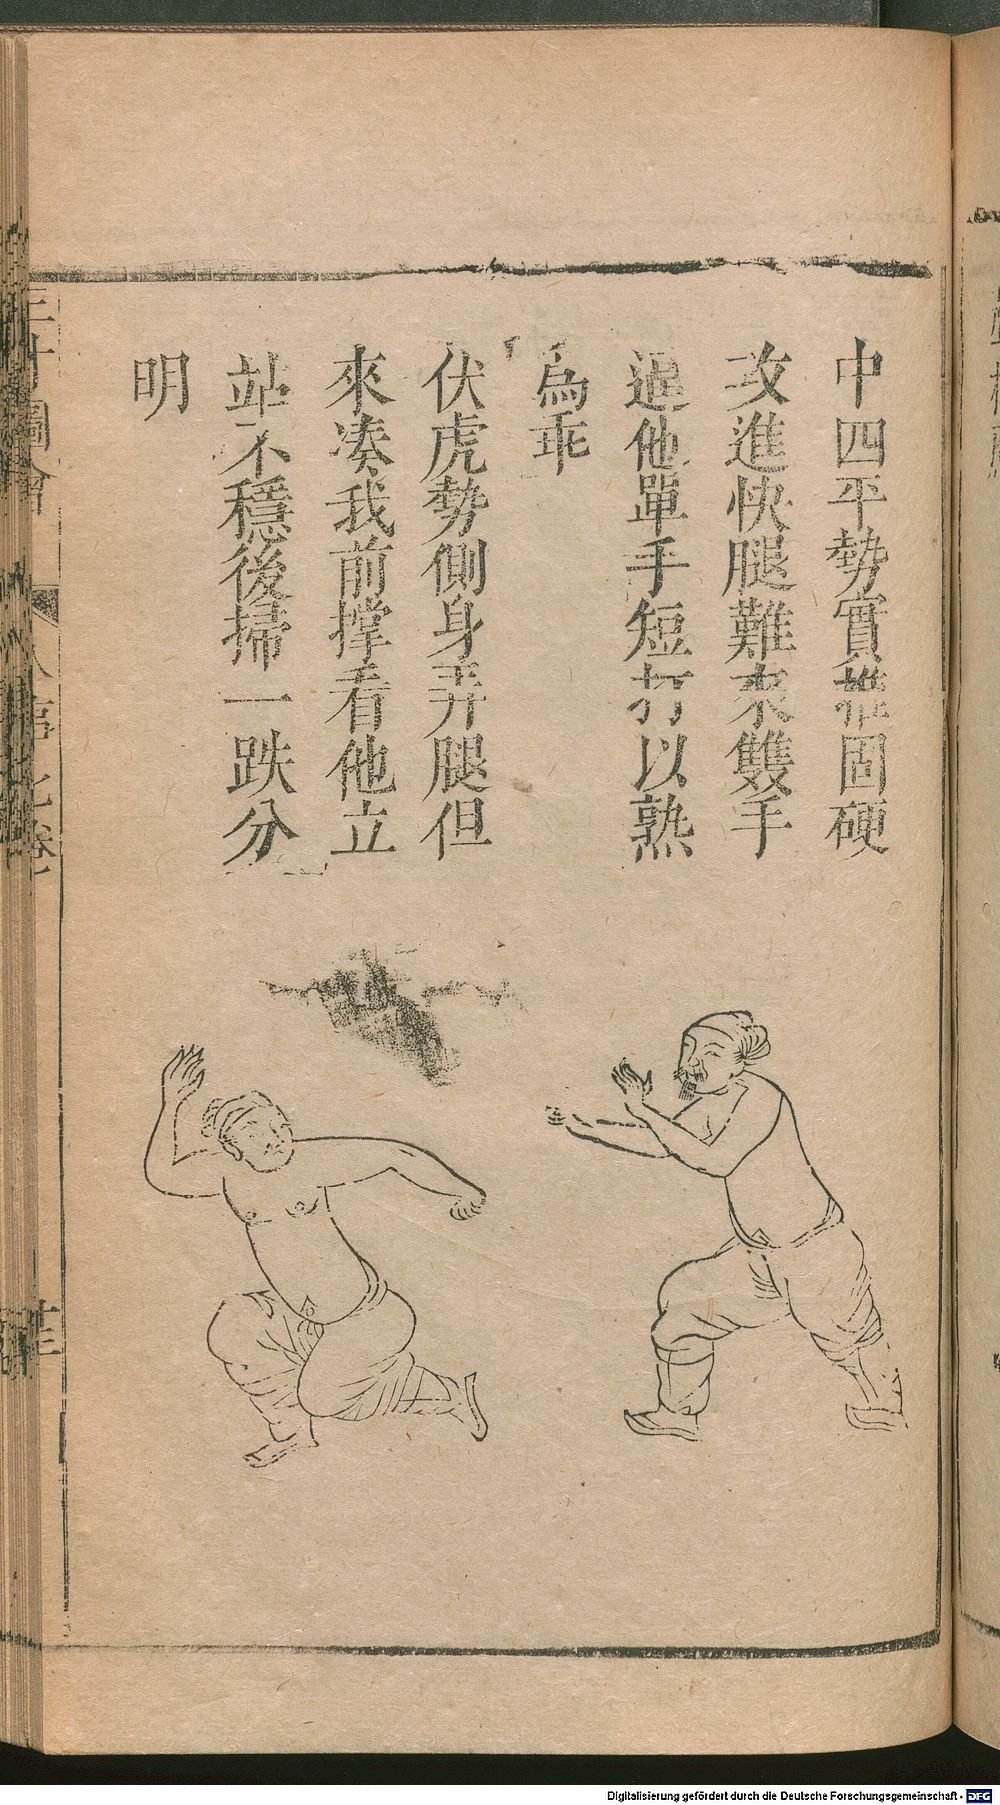 中四平勢實推固硬
攻進快腿難來雙手
逼他單手短打以熟
為乖
伏虎勢側身弄腿但
來湊我前撑看他立
站不穩後掃一跌分
明
三才圖會
人事七卷
Digitalisierung gefördert durch die Deutsche Forschungsgemeinschaft - DFG